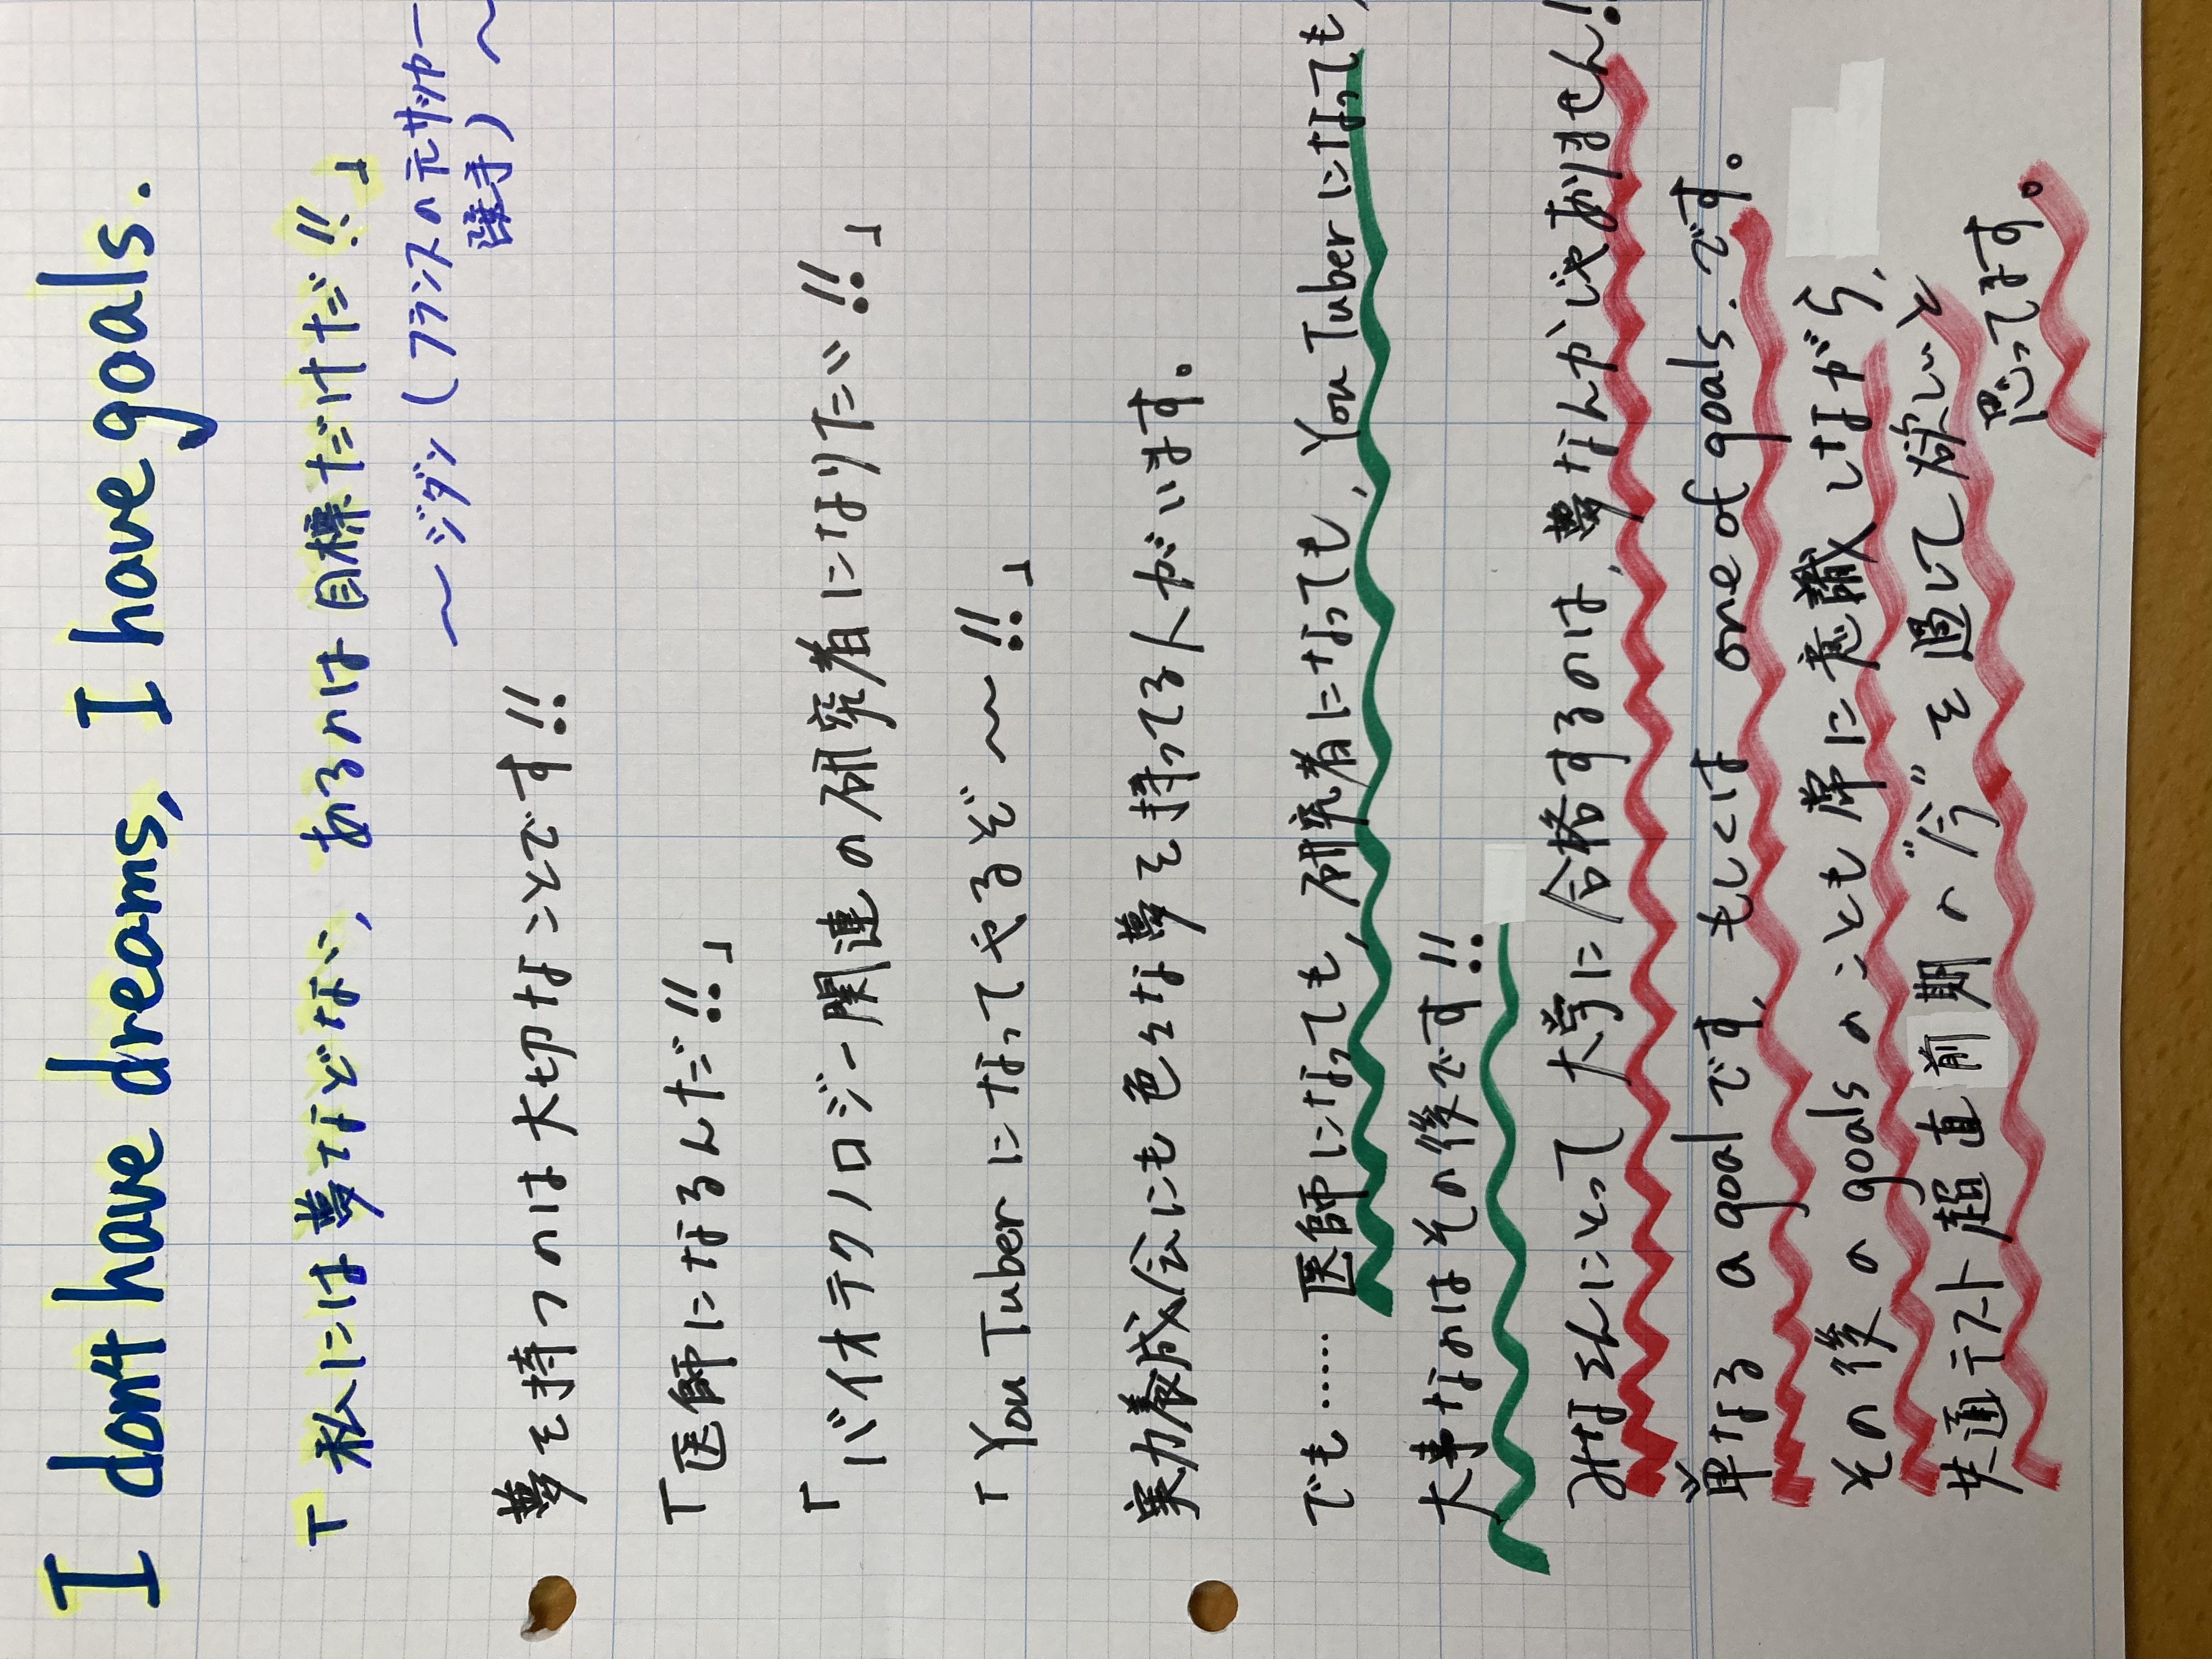 I don't have dreams, I have goals.
「私には夢などない、あるのは目標だけだ!!」
〜ジダン(フランスの元サッカー
選手)〜
夢を持つのは大切なことです!!
「医師になるんだ!!」
「バイオテクノロジー関連の研究者になりたい!!」
「YouTuberになってやるぞ〜!!」
実力養成会にも色々な夢を持ってる人がいます。
でも……医師になっても、研究者になっても、YouTuberになっても、
大事なのはその後です!!
みなさんにとって大学に合格するのは、夢なんかじゃありません!!
単なる a goal です、もしくは one of goals.です。
その後の goals のことも常に意識しながら、
共通テスト超直前期の"今"を過して欲しいと
思ってます。